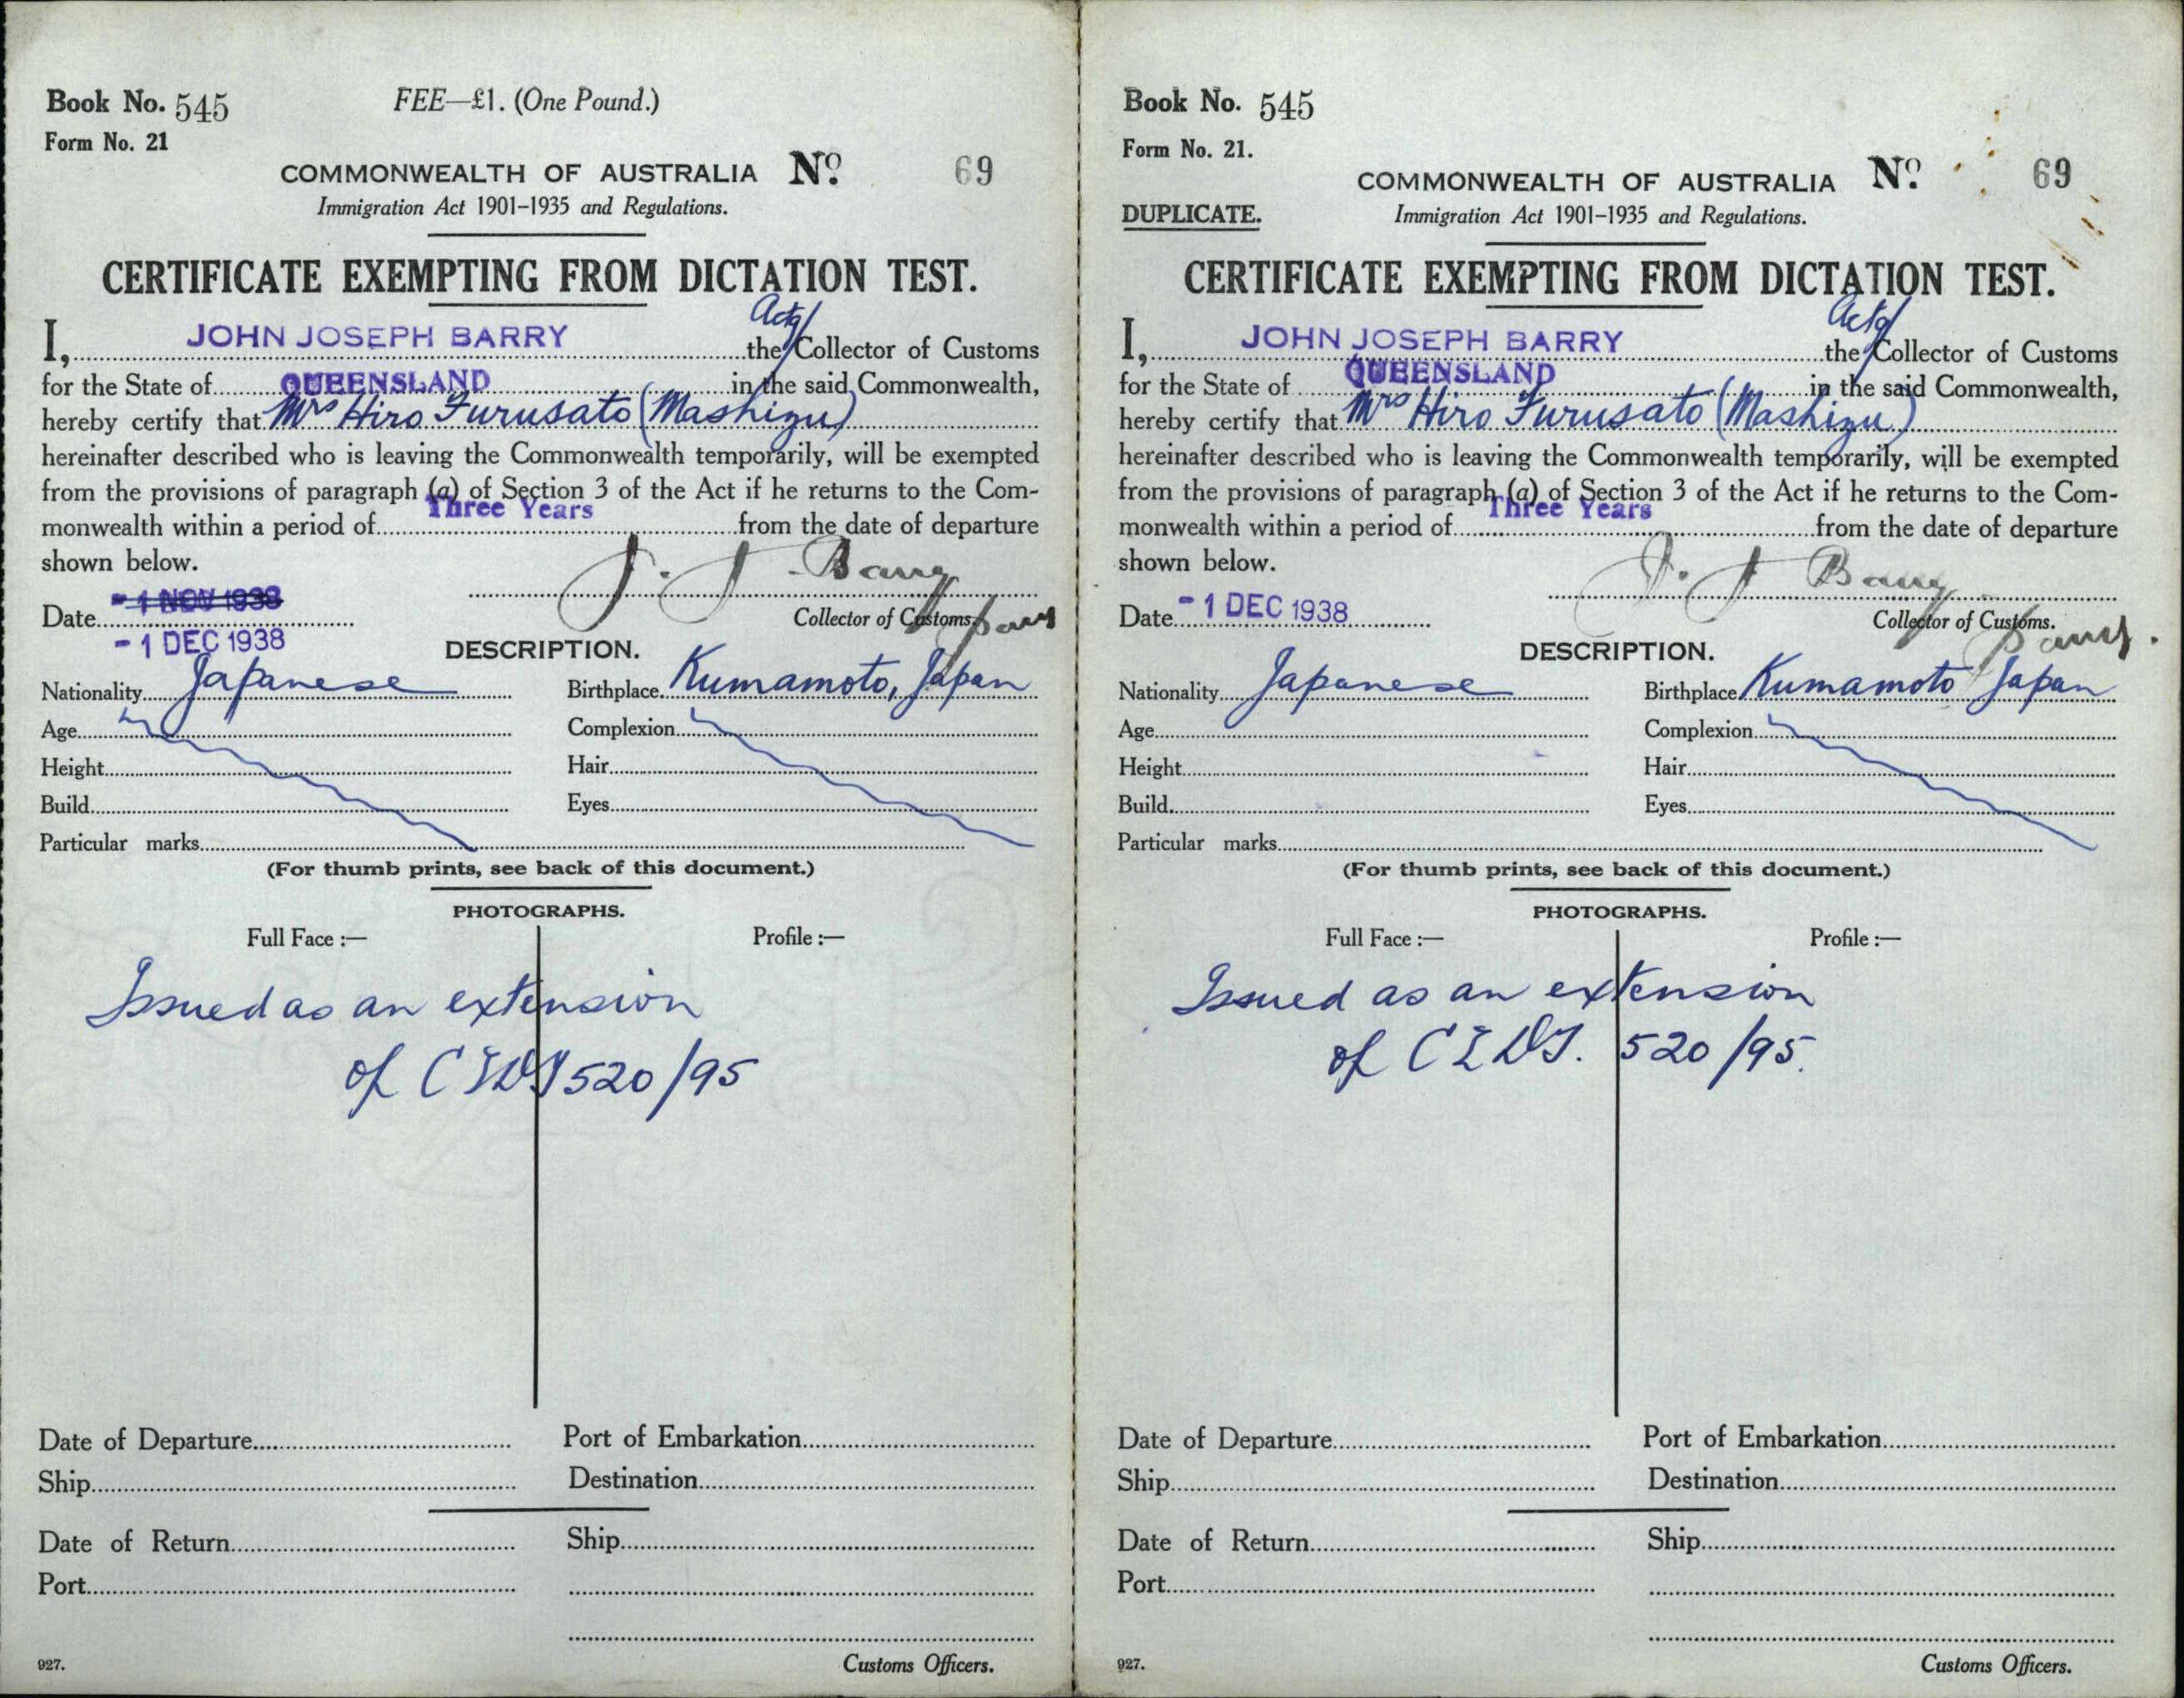 Book No. 545
FEE—£1. (One Pound.)
Form No. 21
COMMONWEALTH OF AUSTRALIA No. 69
Immigration Act 1901–1935 and Regulations.
CERTIFICATE EXEMPTING FROM DICTATION TEST.
Actg/
I, JOHN JOSEPH BARRY the Collector of Customs
for the State of QUEENSLAND in the said Commonwealth,
hereby certify that Mrs Hiro Furusato (Mashizu)
hereinafter described who is leaving the Commonwealth temporarily, will be exempted
from the provisions of paragraph (a) of Section 3 of the Act if he returns to the Com-
monwealth within a period of Three Years from the date of departure
shown below.
J. J. Barry
- 1 NOV 1938
Date
Collector of Customs.
- 1 DEC 1938
DESCRIPTION.
Nationality Japanese Birthplace Kumamoto, Japan
Age Complexion
Height Hair
Build Eyes
Particular marks
(For thumb prints, see back of this document.)
PHOTOGRAPHS.
Full Face :— Profile :—
Issued as an extension
of CEDT 520/95
Date of Departure Port of Embarkation
Ship Destination
Date of Return Ship
Port
927. Customs Officers.
Book No. 545
Form No. 21.
COMMONWEALTH OF AUSTRALIA No. 69
DUPLICATE. Immigration Act 1901–1935 and Regulations.
CERTIFICATE EXEMPTING FROM DICTATION TEST.
Actg/
I, JOHN JOSEPH BARRY the Collector of Customs
for the State of QUEENSLAND in the said Commonwealth,
hereby certify that Mrs Hiro Furusato (Mashizu)
hereinafter described who is leaving the Commonwealth temporarily, will be exempted
from the provisions of paragraph (a) of Section 3 of the Act if he returns to the Com-
monwealth within a period of Three Years from the date of departure
shown below.
J. J. Barry
Date - 1 DEC 1938 Collector of Customs.
DESCRIPTION.
Nationality Japanese Birthplace Kumamoto Japan
Age Complexion
Height Hair
Build Eyes
Particular marks
(For thumb prints, see back of this document.)
PHOTOGRAPHS.
Full Face :— Profile :—
Issued as an extension
of CEDT. 520/95.
Date of Departure Port of Embarkation
Ship Destination
Date of Return Ship
Port
927. Customs Officers.